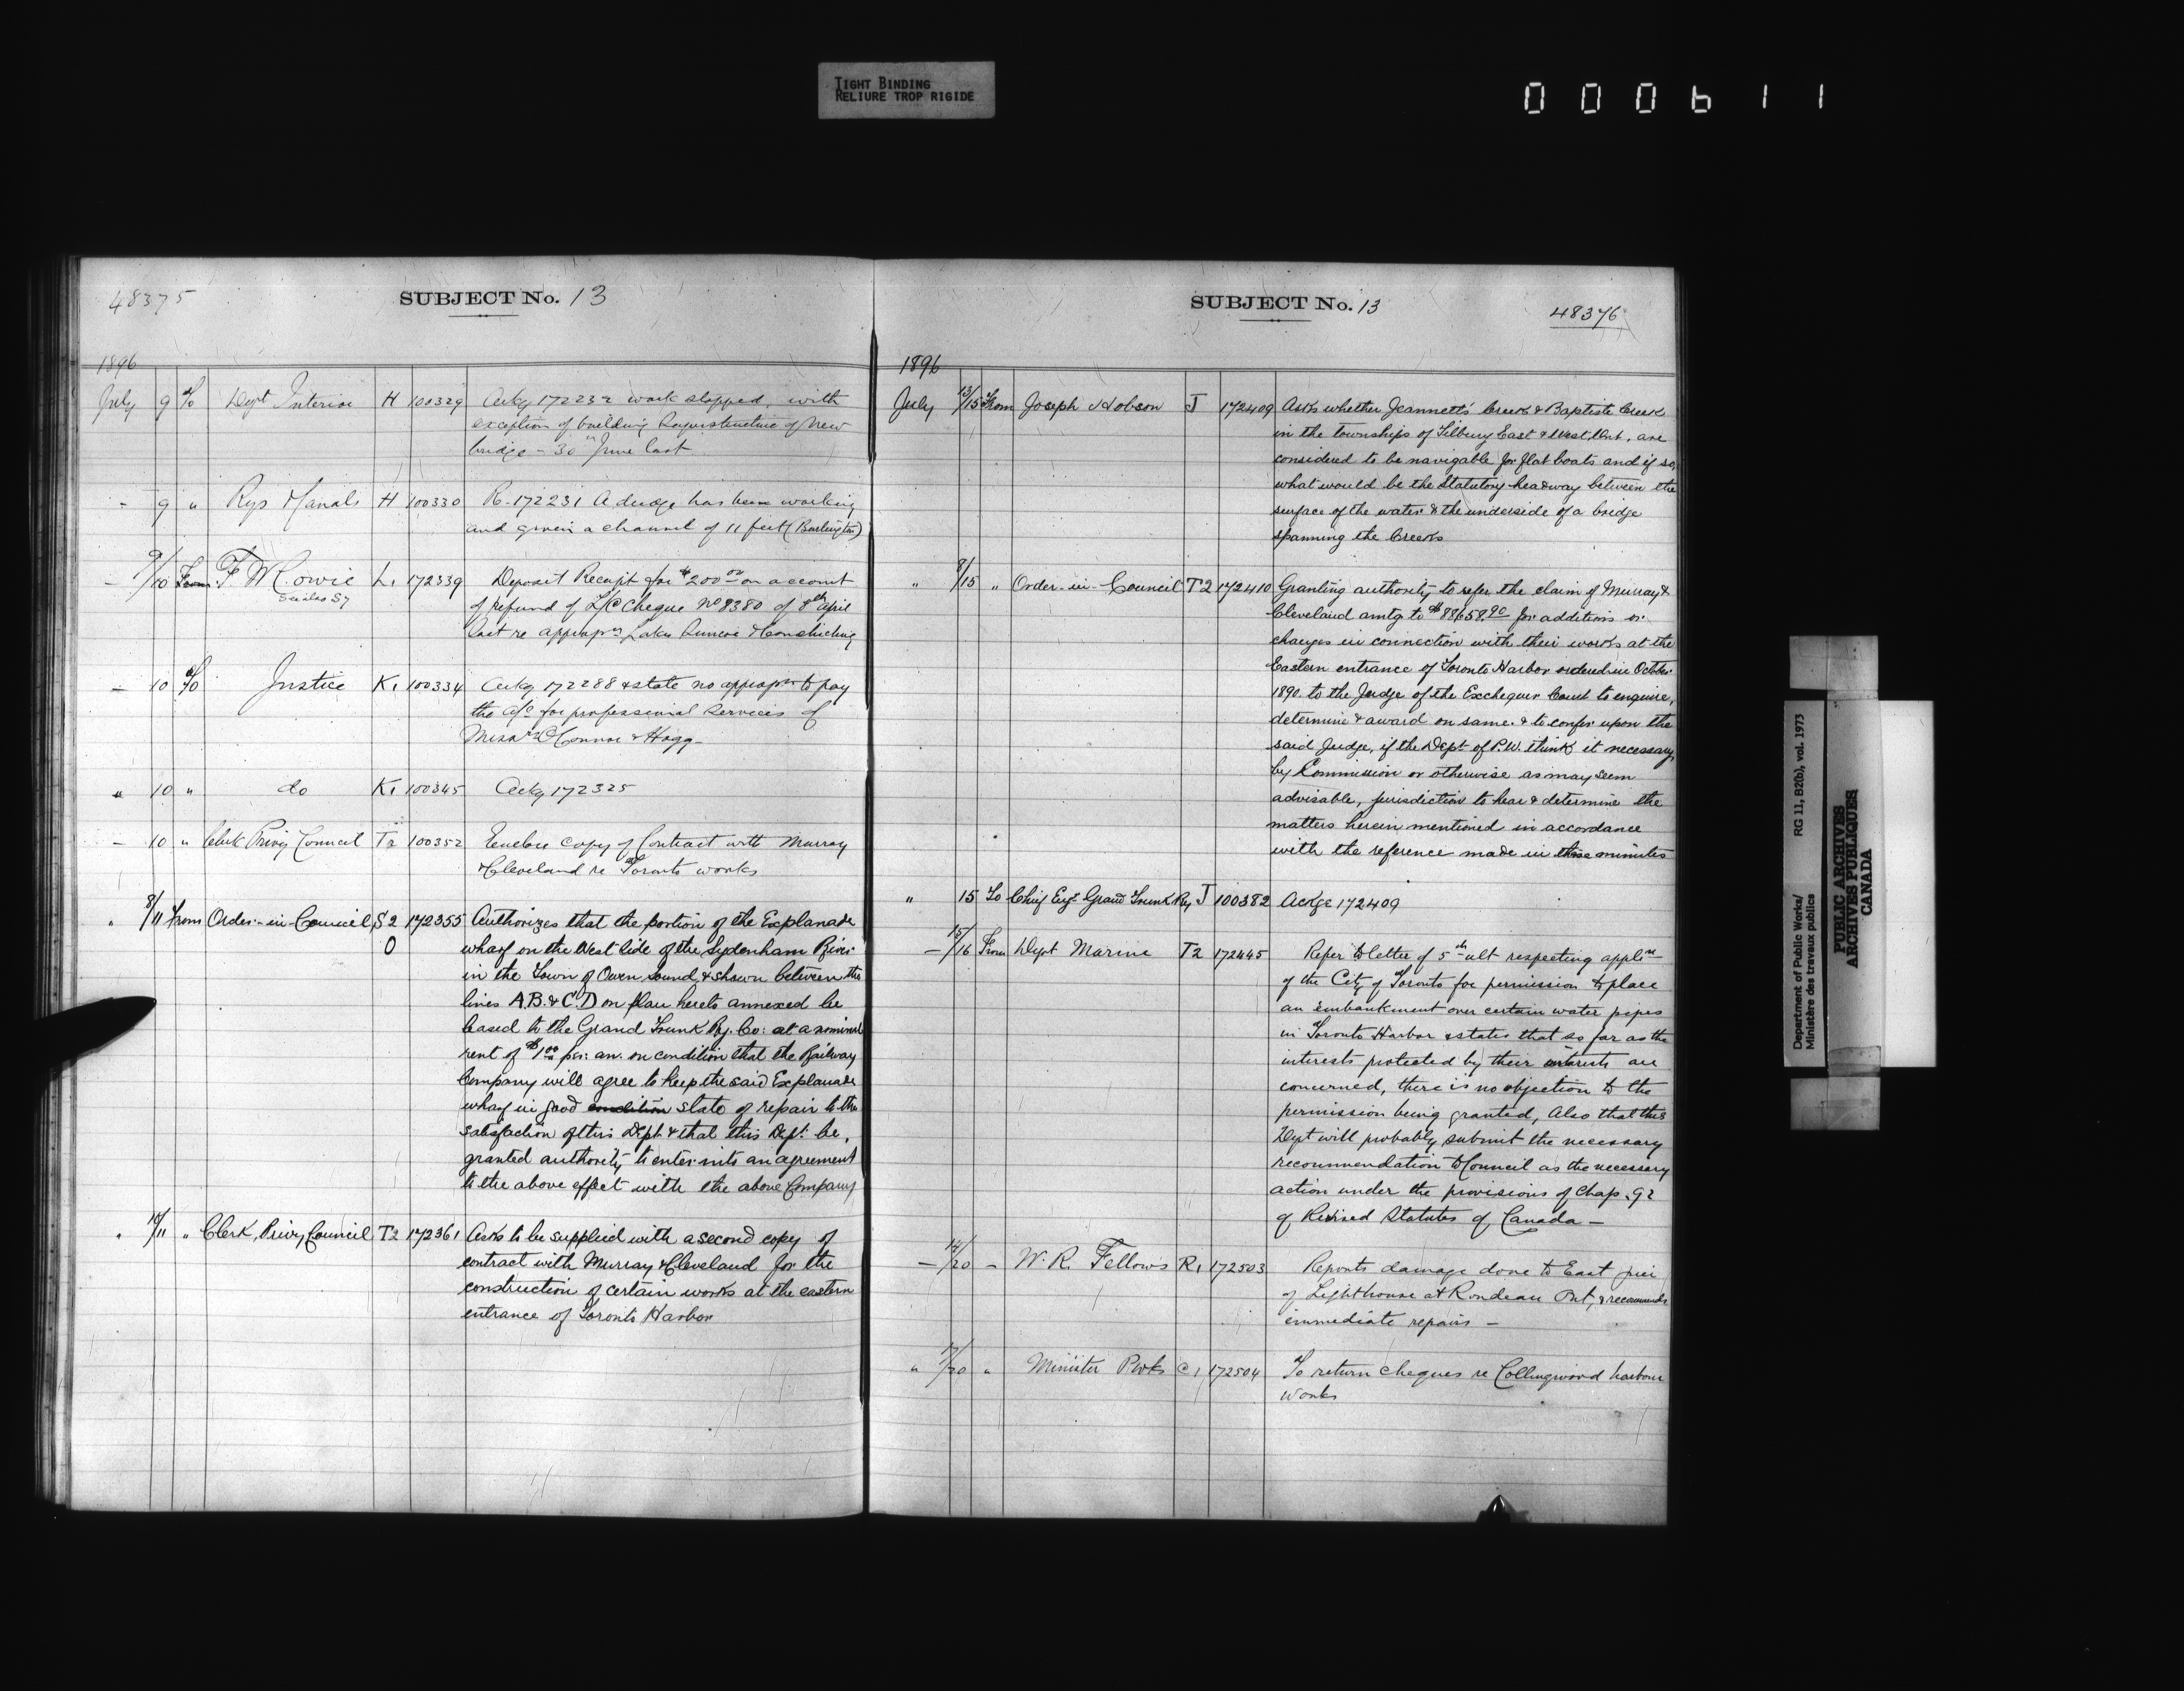 TIGHT BINDING
RELIURE TROP RIGIDE
000611
48375
SUBJECT No. 13
1896
July 9 To Dept Interior H 100329 Ackg 172232 work stopped, with
exception of building Superstructure of New
bridge - 30th June last
- 9 " Rys & Canals H 100330 R-172231 A dredge has been working
and given a channel of 11 feet (Burlington)
- 9/10 From F W Cowie L1 172339 Deposit Receipt for $200 00 on account
of refund of L/C Cheque No 8380 of 8th April
last re appropn Lakes Simcoe & Couchiching
- 10 To Justice K1 100334 Ackg 172288 & state no appropn to pay
the a/c for professional services of
Messrs O'Connor & Hogg-
" 10 " do K1 100345 Ackg 172325
- 10 " Clerk Privy Council T2 100352 Enclose copy of Contract with Murray
& Cleveland re Toronto works
" 8/11 From Order-in-Council S2 172355 Authorizes that the portion of the Explanade
O wharf on the West side of the Sydenham River
in the Town of Owen Sound, & shewn between the
lines A.B. & C.D on plan hereto annexed be
leased to the Grand Trunk Ry. Co: at a nominal
rent of $1.00 per: an. on condition that the Railway
Company will agree to keep the said Explanade
wharf in good condition state of repair to the
satisfaction of this Dept. & that this Dept. be,
granted authority to enter into an agreement
to the above effect with the above Company
" 10/11 " Clerk, Privy Council T2 172361 Asks to be supplied with a second copy of
contract with Murray & Cleveland for the
construction of certain works at the eastern
entrance of Toronto Harbor
SUBJECT No. 13
48376
1896
July 13/15 From Joseph Hobson J 172409 Asks whether Jeannett's Creek & Baptiste Creek
in the townships of Tilbury East & West, Ont, are
considered to be navigable for flat boats and if so,
what would be the Statutory headway between the
surface of the water & the underside of a bridge
spanning the Creeks
" 8/15 " Order-in-Council T2 172410 Granting authority to refer the claim of Murray &
Cleveland amtg to $88658.90 for additions or
changes in connection with their works at the
Eastern entrance of Toronto Harbor ordered in October
1890. to the Judge of the Exchequer Court to enquire,
determine & award on same. & to confer upon the
said Judge, if the Dept of P.W. think it necessary,
by Commission or otherwise as may seem
advisable, jurisdiction to hear & determine the
matters herein mentioned in accordance
with the reference made in those minutes
" 15 To Chief Engr Grand Trunk Ry J 100382 Ackge 172409
- 15/16 From Dept Marine T2 172445 Refer to letter of 5th ult respecting applin
of the City of Toronto for permission to place
an embankment over certain water pipes
in Toronto Harbor & states that so far as the
interests protected by their interests are
concerned, there is no objection to the
permission being granted, Also that this
Dept will probably submit the necessary
recommendation to Council as the necessary
action under the provisions of Chap. 92
of Revised Statutes of Canada -
- /20 - W. R. Fellows R1 172503 Reports damage done to East pier
of Lighthouse at Rondeau Ont, & recommends
immediate repairs -
" /20 " Minister P Wks C1 172504 To return cheques re Collingwood harbour
works
Department of Public Works/
Ministère des travaux publics
RG 11, B2(b), vol. 1973
PUBLIC ARCHIVES
ARCHIVES PUBLIQUES
CANADA